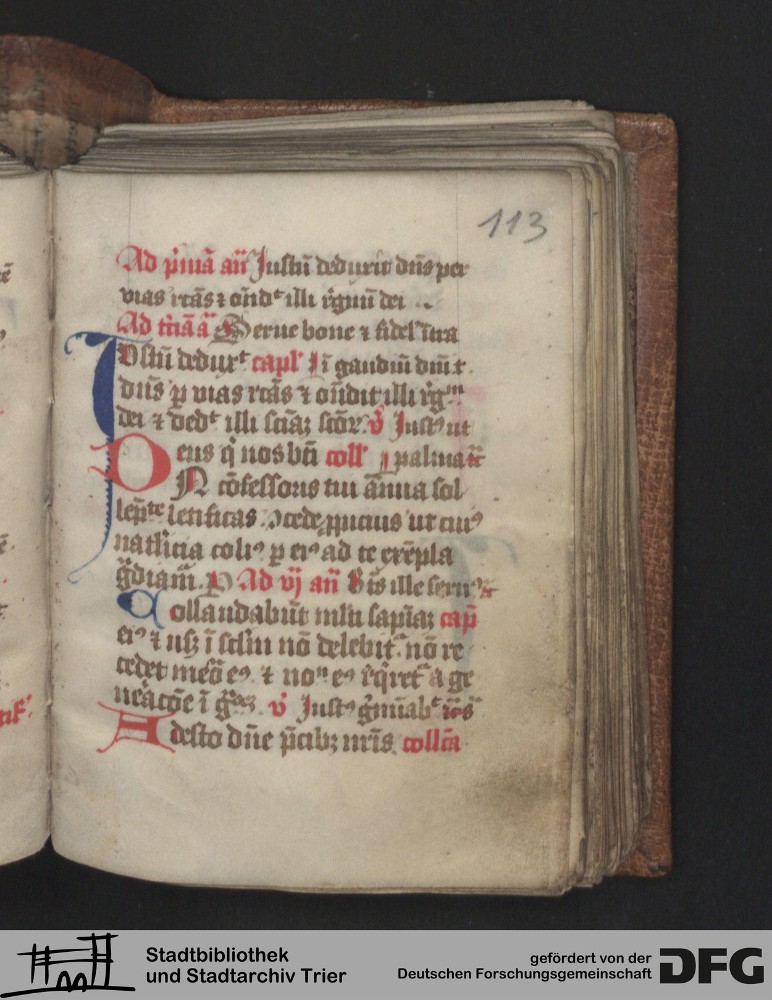 113
Ad p̄mā an̄ Justū deduxit dn̄s per
vias rc̄as ⁊ on̄d᷑ illi rg̅nū dei
Ad tr̄iā ā Serue bone ⁊ fidel̄ ītra
Justū dedux᷑ capl̄ ī gaudiū dn̄i t.
dn̄s ꝑ vias rc̄as ⁊ on̄dit illi rg̅
dei ⁊ ded᷑ illi sciāꝫ sc̄oꝝ. v̄ Just⁹ ut
Deus q̄ nos bt̄i coll̄ palma
N cōfessoris tui ān̄ua sol
lep̄te letificas ꝯcede ꝓpicius ut cui⁹
natlicia coli⁹ ꝑ ei⁹ ad te exēpla
g̅diam̄. P Ad vj an̄ Bt̄s ille seru⁹
Collaudabūt ml̄ti sapīaꝫ cap̄
ei⁹ ⁊ usqꝫ ī sclm̄ nō delebit᷑. nō re
cedet meō e⁹ ⁊ no e⁹ rq̄ret᷑ a ge
neac̄oe ī g̅. v̄ Just⁹ g̅mīab᷑
Adesto dn̄e p̄cibꝫ nr̄is collc̄a
Stadtbibliothek
und Stadtarchiv Trier
gefördert von der
Deutschen Forschungsgemeinschaft
DFG